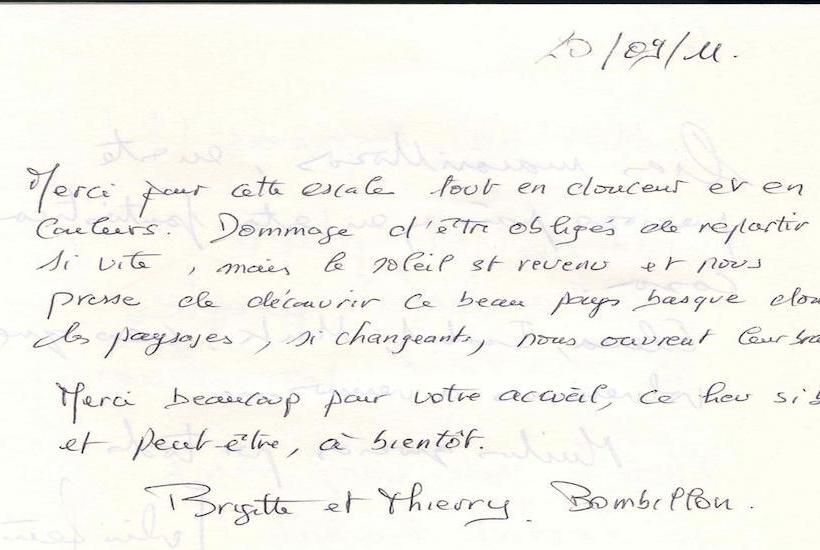 20/09/11.
Merci pour cette escale tout en douceur et en
Couleurs. Dommage d'être obligés de repartir
si vite, mais le soleil est revenu et nous
presse de découvrir ce beau pays basque
les paysages, si changeants, nous ouvrent leur
Merci beaucoup pour votre accueil, ce lieu si
et peut-être, à bientôt.
Brigitte et Thierry. Bombillon.